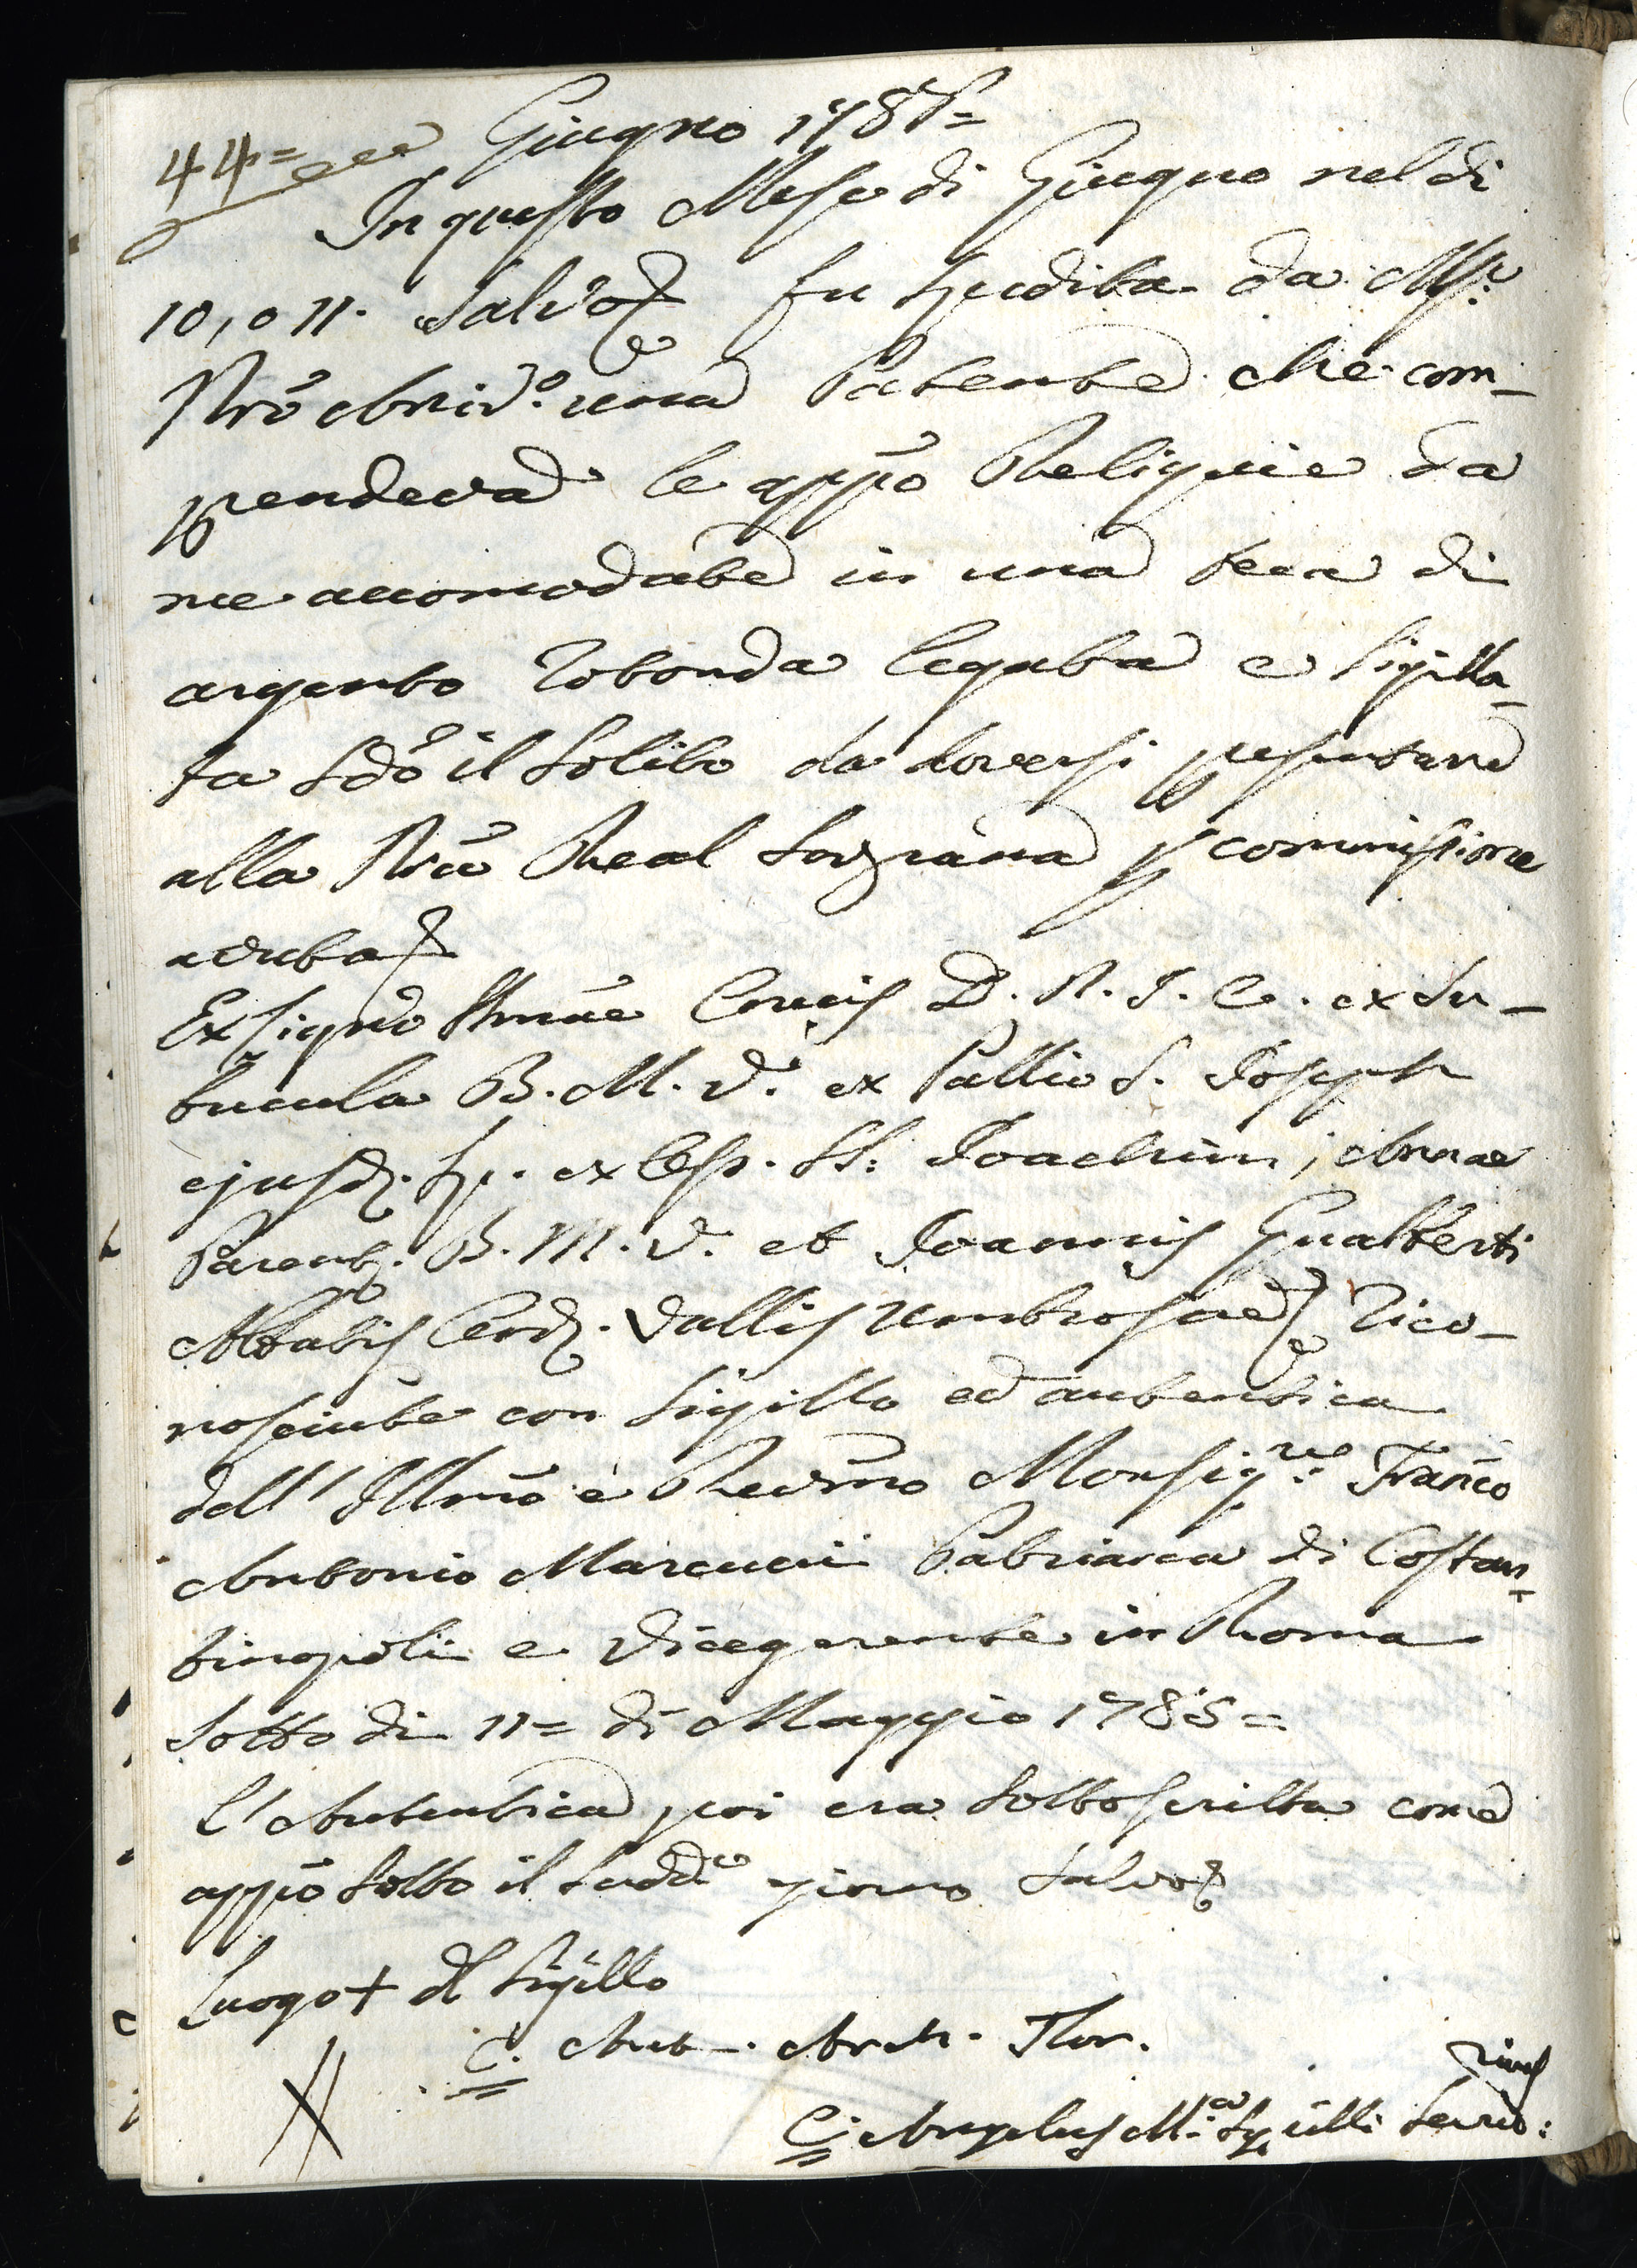 44= Giugno 1785=
In questo Mese di Giugno nel dì
10, o 11. Salvo fu spedita da M.r
Nrō Arciv.o una Patente che com-
prendeva le apprō Reliquie da
me accomodate in una teca di
argento rotonda legata e sigilla-
ta sdō il solito da doversi presentare
alla Nrā Real Sovrana p commissione
avuta
Ex Ligno Ssmāe Crucis D. N. J. C. ex Su-
bucula B. M. V. ex Pallio S. Joseph
ejusd. Sp. ex Ossb. SS: Joachim, Annae
Parent. B. M. V. et Joannis Gualberti
Abbatis Cend. Vallis Umbrosae Rico-
nosciute con Sigillo ed autentica
dell' Illmō e Revmō Monsig.re Franco
Antonio Marcucci Patriarca di Costan-
tinopoli e Vicegerente in Roma
Sotto dì 11= di Maggio 1785=
l'Autentica poi era Sottoscritta come
apprō Sotto il Sudd.o giorno Salvo
Luogo + dl Sigillo
C. Ant. Arch. Flor.
C: Angelus M.a Spilli Servo: